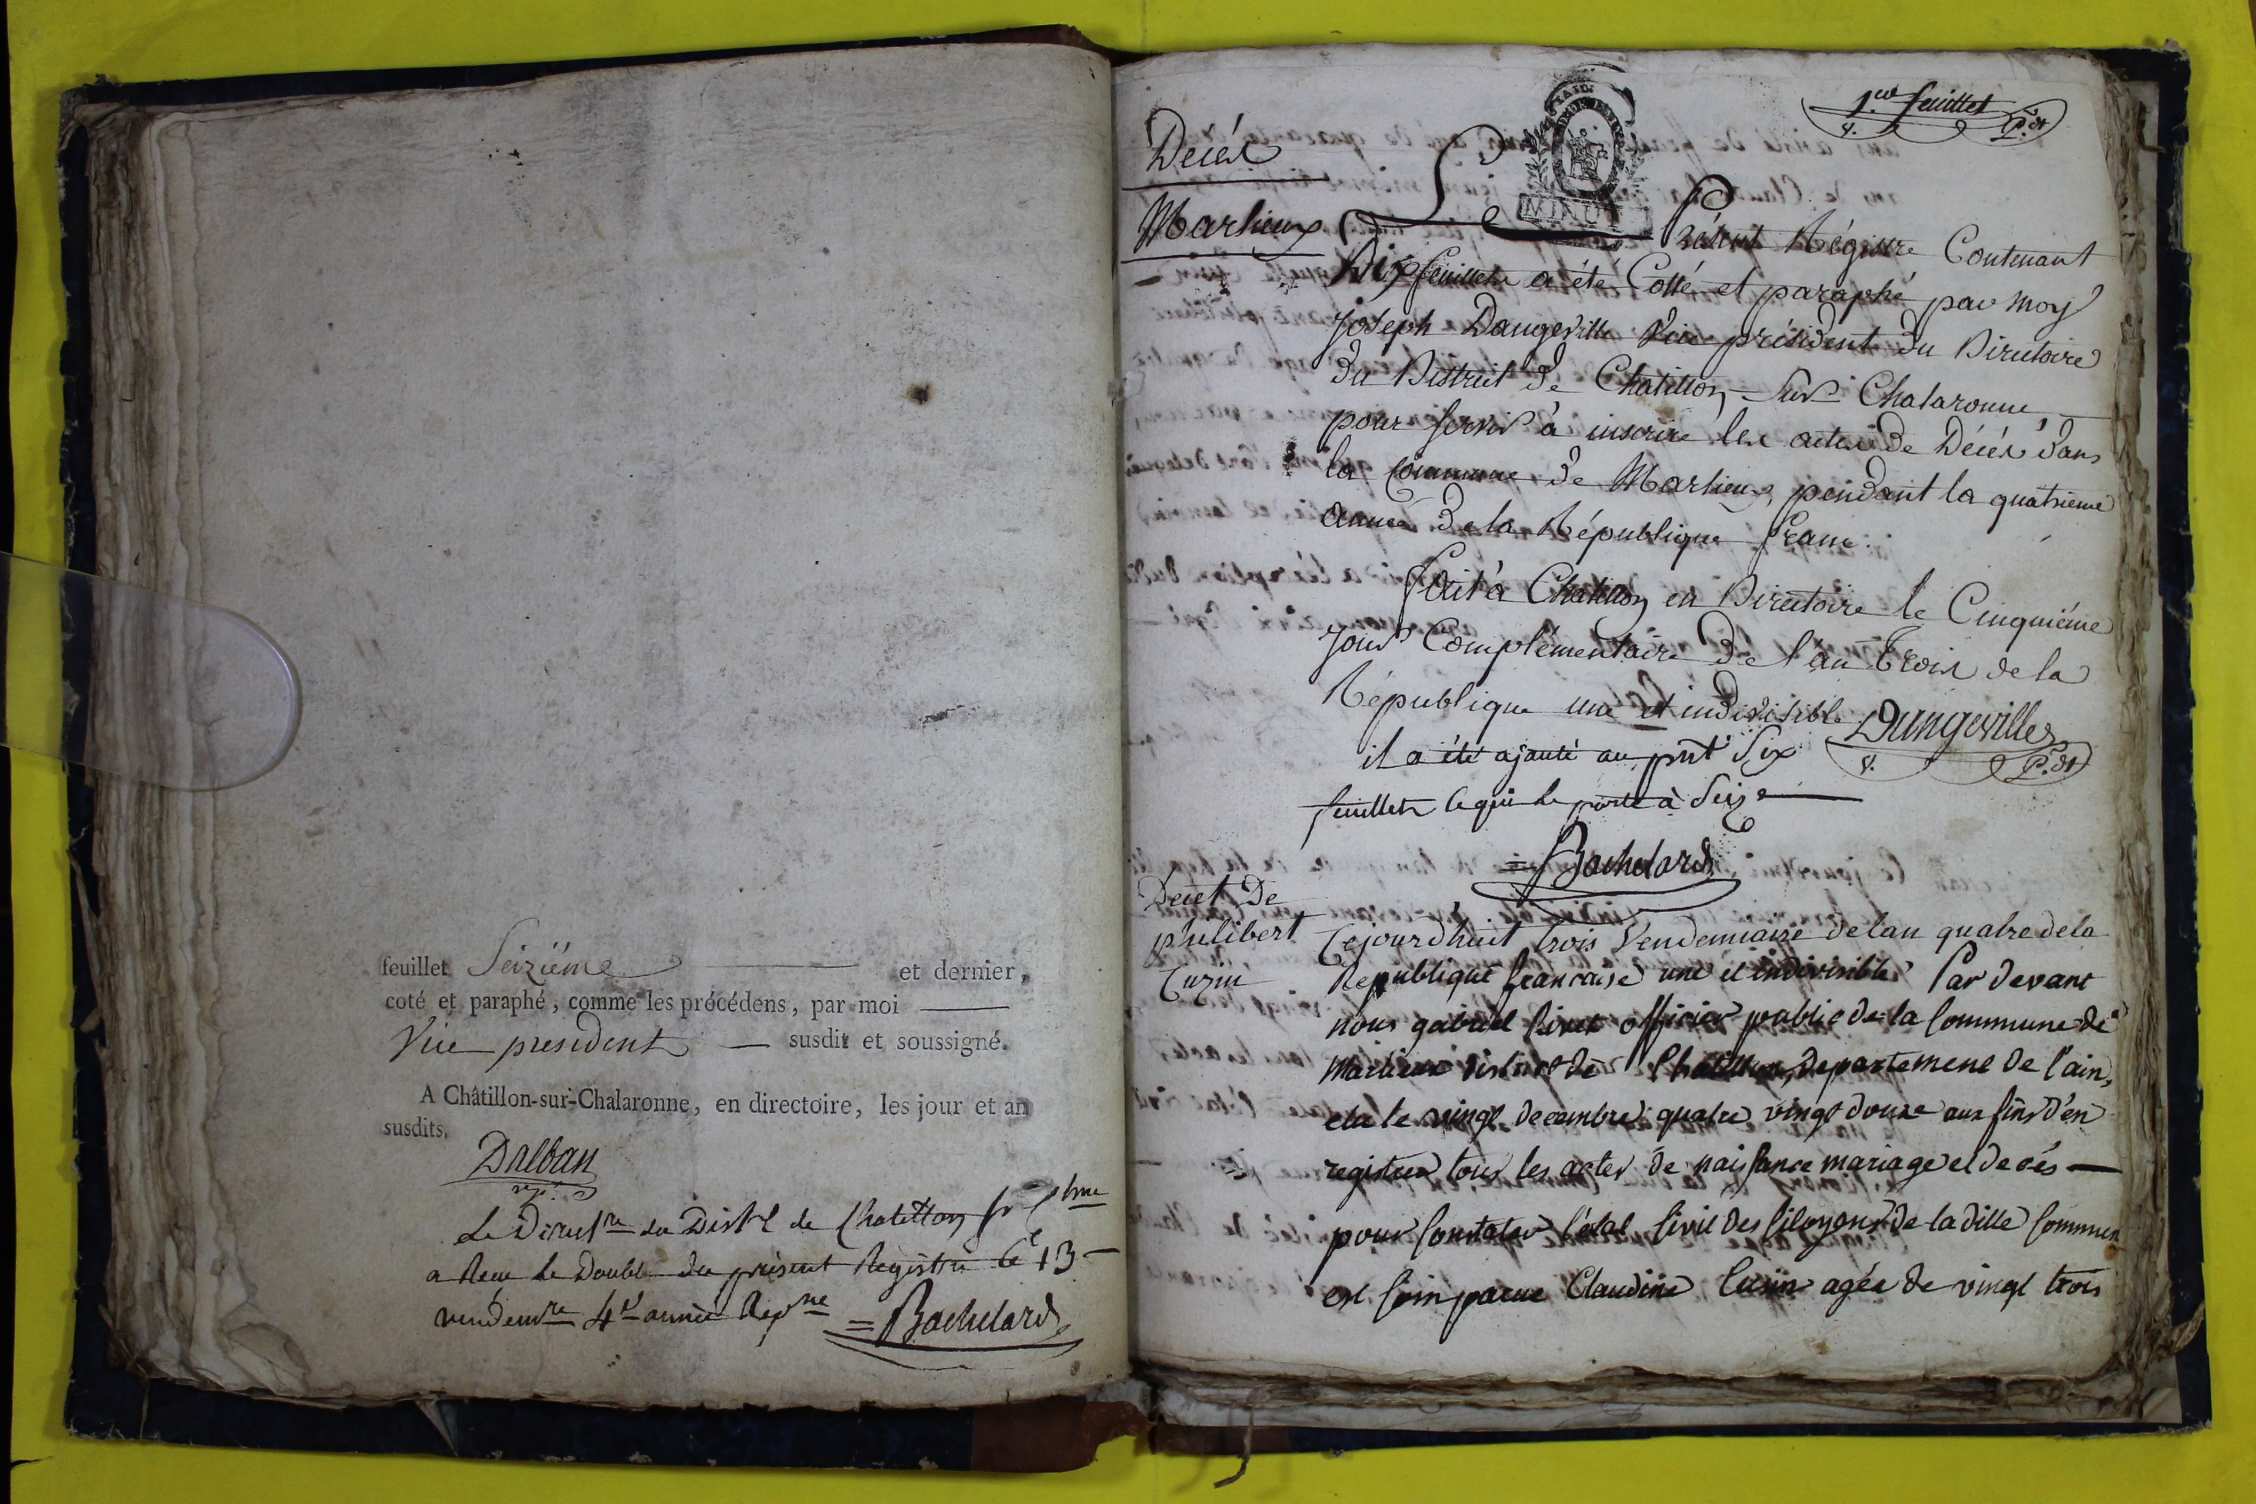 feuillet Seizième et dernier,
coté et paraphé, comme les précédens, par moi
Vice président susdit et soussigné.
A Châtillon-sur-Chalaronne, en directoire, les jour et an
susdits.
Dalban
Le Direct.re du Dist.t de Chatillon
a Reçu le Double du présent Registre le 13
vendem.re 4.e année Rep.ne
= Bachelard
1.er feuillet
V. P.dt
Décès
Marlieux
MINU
Présent Régistre Contenant
Dix feuillets a été Cotté et paraphé par moy
Joseph Dangeville Vice président du Directoire
du District de Chatillon Sur Chalaronne
pour servir à inscrire les actes de Décès dans
la Commune de Marlieux, pendant la quatrieme
année de la République franc.
fait à Chatillon en Directoire le Cinquième
Jour Complémentaire de l'an Trois de la
République une et indivisible
Dangeville
V. P.dt
il a été ajouté au pnt Six
feuillets ce qui le porte à Seize
= Bachelard
Decet De
philibert
Cuzin
Cejourdhuit trois Vendemiaire delan quatre dela
Republique francaise une et indivisible Par devant
nous gabriel officier public de la Commune de
Marlieux district de Chatillon, departement de l'ain,
elu le vingt decembre quatre vingt douze aux fins d'en
registrer tous les actes de naissance mariage et decés
pour Constater l'état Civil Des Citoyens de la ditte Commun
est Comparue Claudine Cuzin agée de vingt trois